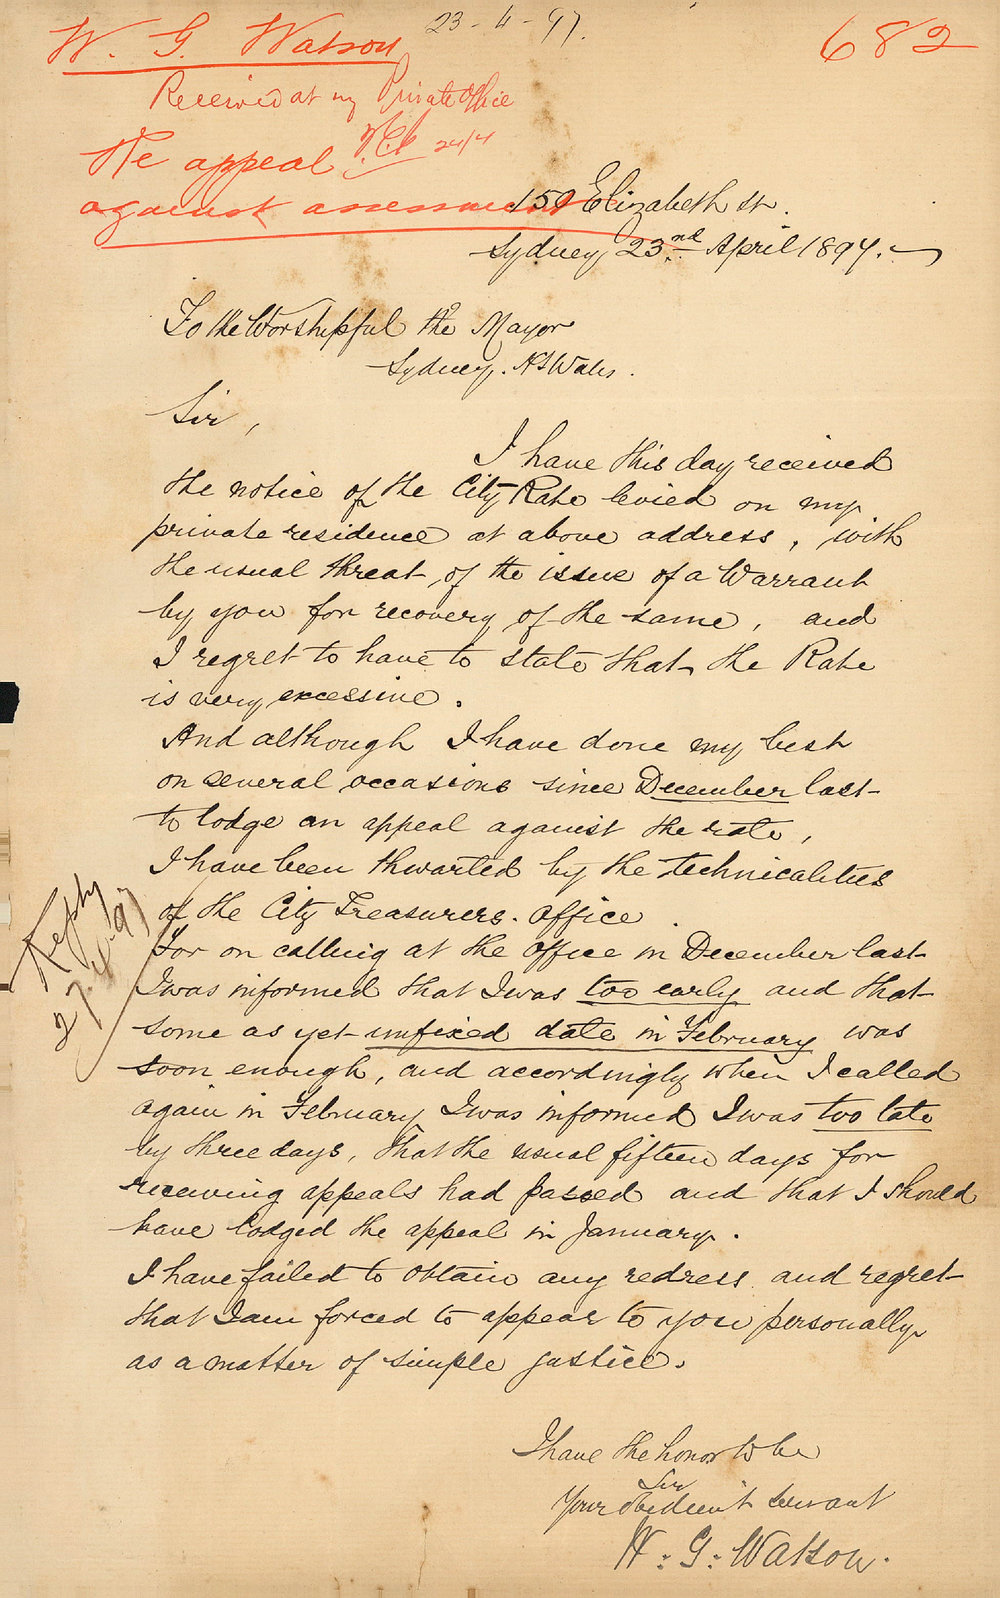 23-4-97.
W. G. Watson
682
Received at my Private Office
24/4
Re appeal
against assessment
159 Elizabeth St.
Sydney, 23nd April 1897.
To the Worshipful the Mayor
Sydney. N S Wales.
Sir,
I have this day received
the notice of the City Rate levied on my
private residence at above address, with
the usual threat of the issue of a Warrant
by you for recovery of the same, and
I regret to have to state that the Rate
is very excessive.
And although I have done my best
on several occasions since December last
to lodge an appeal against the rate,
I have been thwarted by the technicalities
of the City Treasurers. Office.
For on calling at the office in December last
I was informed that I was too early and that
some as yet unfixed date in February was
soon enough, and accordingly when I called
again in February I was informed I was too late
by three days, that the usual fifteen days for
receiving appeals had passed and that I should
have lodged the appeal in January.
I have failed to obtain any redress and regret
that I am forced to appear to you personally
as a matter of simple justice.
Reply
27.4.97
I have the honor to be
Sir
Your obedient servant
W. G. Watson.